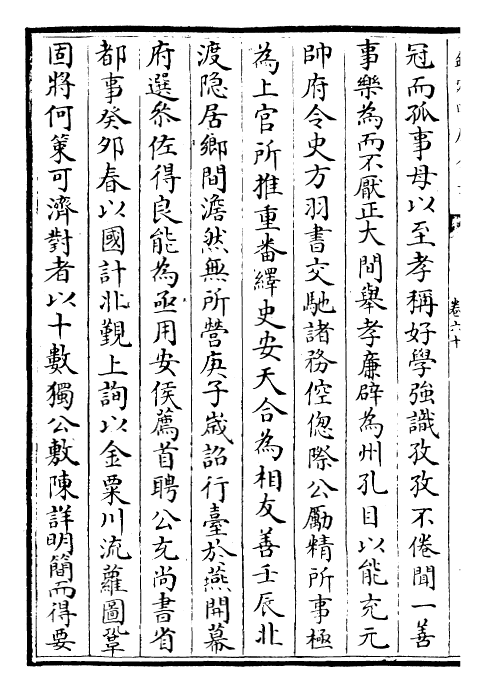 卷六十
冠而孤事母以至孝稱好學強識孜孜不倦聞一善
事樂為而不厭正大間舉孝廉辟為州孔目以能充元
帥府令史方羽書交馳諸務倥傯際公勵精所事極
為上官所推重番繹史安天合為相友善壬辰北
渡隐居鄉間澹然無所營庚子歲詔行臺於燕開幕
府選叅佐得良能為亟用安侯薦首聘公充尚書省
都事癸夘春以國計北覲上詢以金粟川流蘿圖鞏
固將何策可濟對者以十數獨公敷陳詳明簡而得要